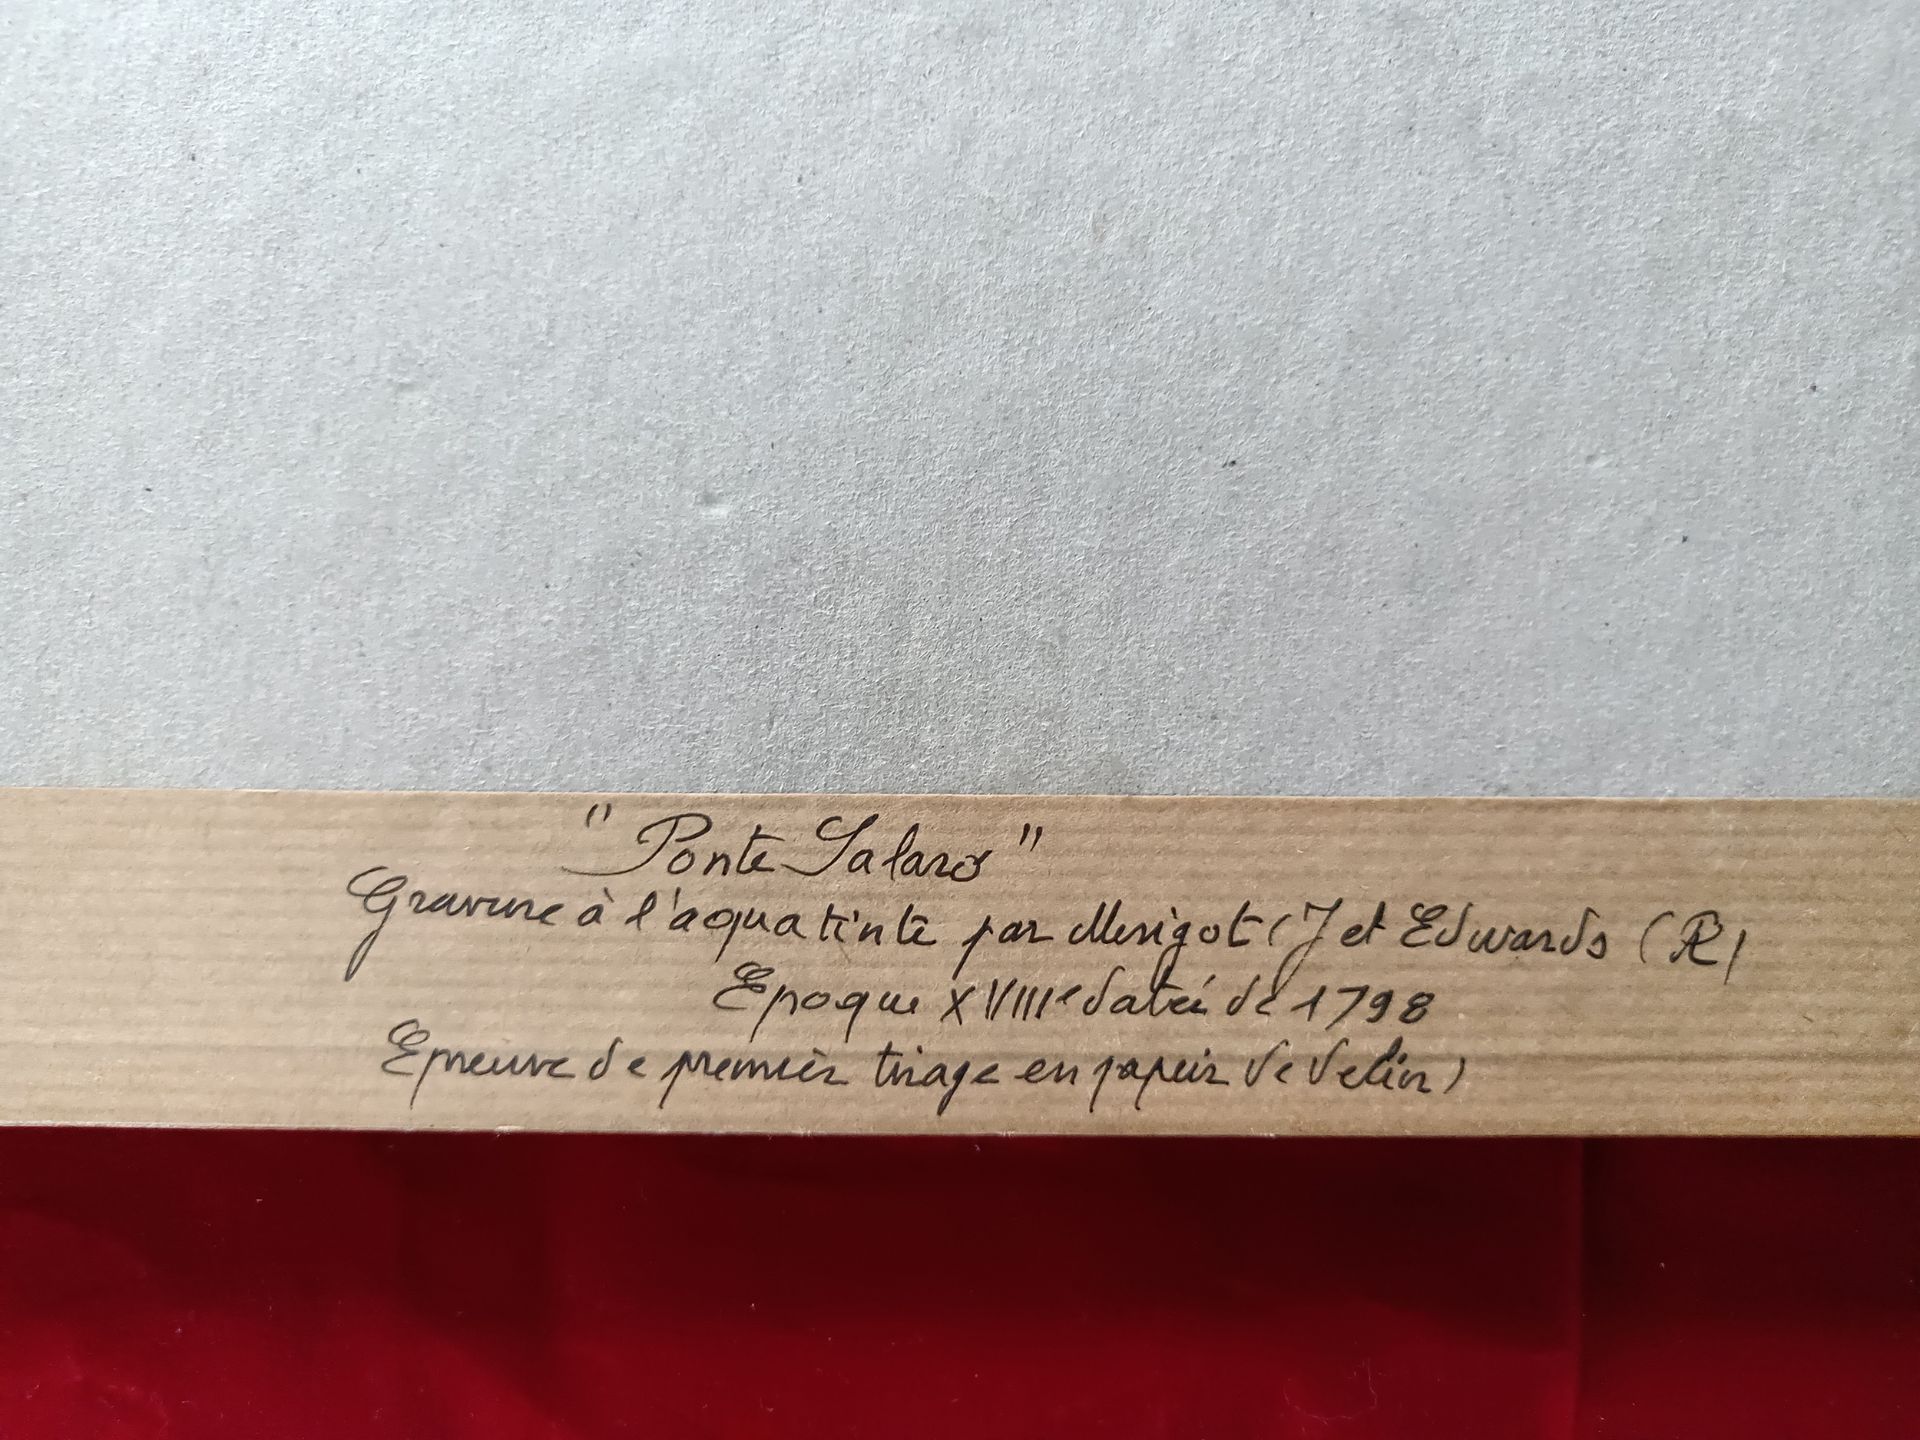 "Ponte Salaro"
Gravure à l'aquatinte par Merigot (J et Edwards (R)
Epoque XVIIIe datéé de 1798
Epreuve de premièr tirage en papeir de velin)